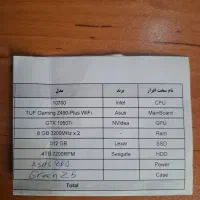 مدل برند نام سخت افزار
10700 Intel CPU
TUF Gaming Z490-Plus WiFi Asus MainBoard
GTX 1050Ti NVidea GPU
8 GB 3200MHz x 2 - Ram
512 GB Lexar SSD
4TB 7200RPM Seagate HDD
Power
Green Z5 Case
Total